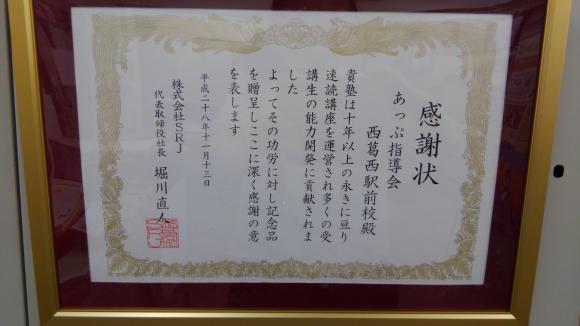 感謝状
あっぷ指導会
西葛西駅前校殿
貴塾は十年以上の永きに亘り
速読講座を運営され多くの受
講生の能力開発に貢献されま
した
よってその功労に対し記念品
を贈呈しここに深く感謝の意
を表します
平成二十八年十一月十三日
株式会社SRJ
代表取締役社長 堀川直人